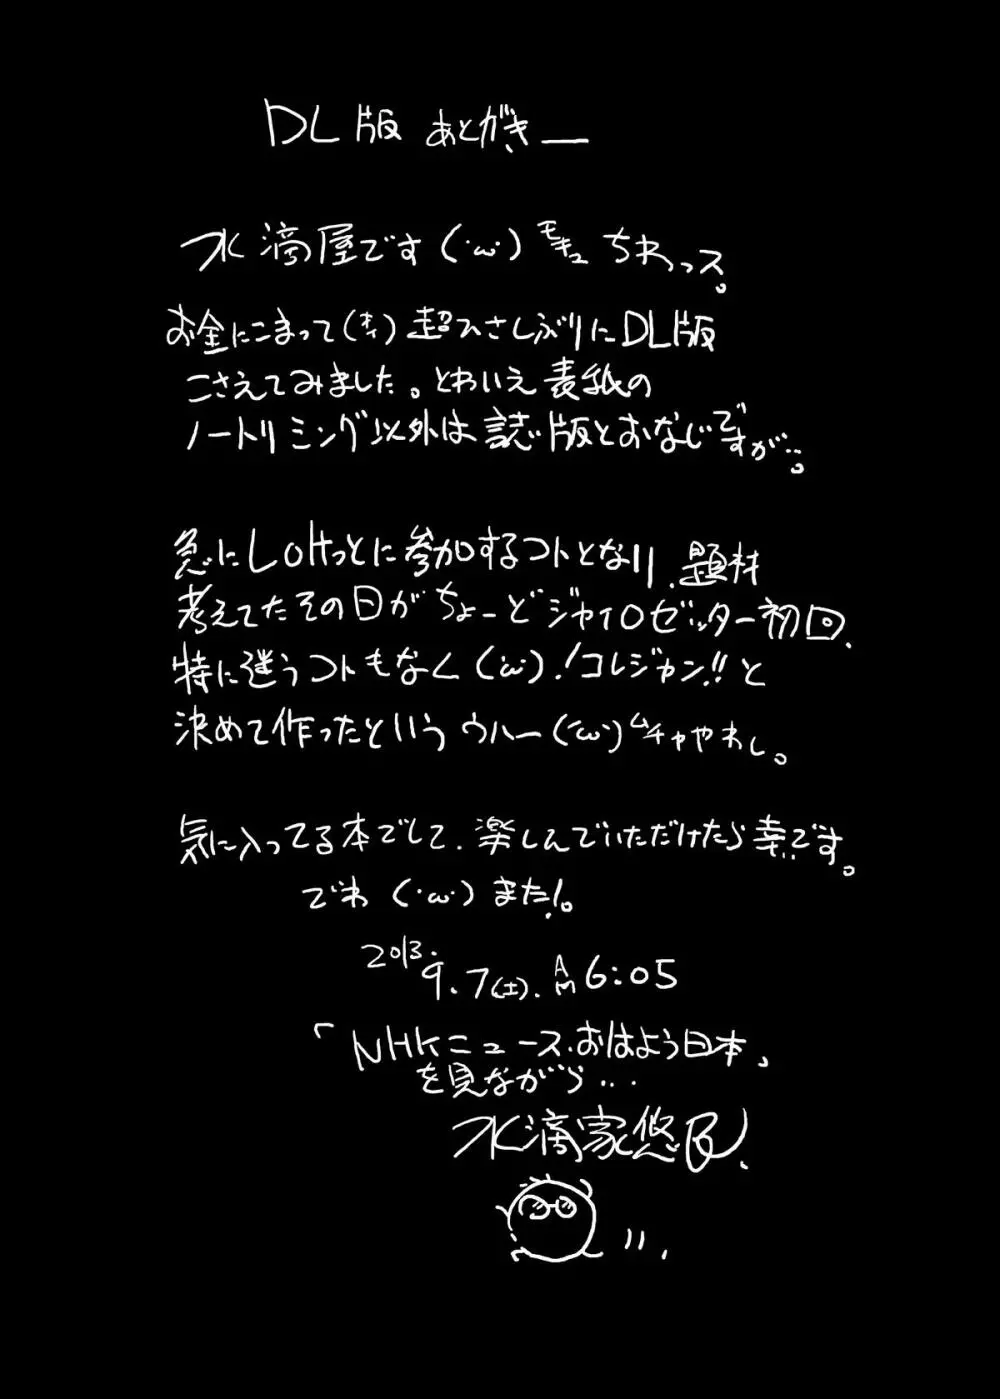 DL版 あとがきー
水滴屋です(・ω・)モキュ ちわっス。
お金にこまって(オイ)超ひさしぶりにDL版
こさえてみました。とわいえ表紙の
ノートリミング以外は誌版とおなじですが…。
急にLOHっとに参加するコトとなり、題材
考えてたその日がちょーどジャイロゼッター初回、
特に迷うコトもなく(・ω・)!コレジャン!!と
決めて作ったという ウハー(・ω・)ムチャやわし。
気に入ってる本でして、楽しんでいただけたら幸いです。
でわ(・ω・)また!。
2013.9.7(土).AM6:05
「NHKニュースおはよう日本」
を見ながら…
水滴家悠